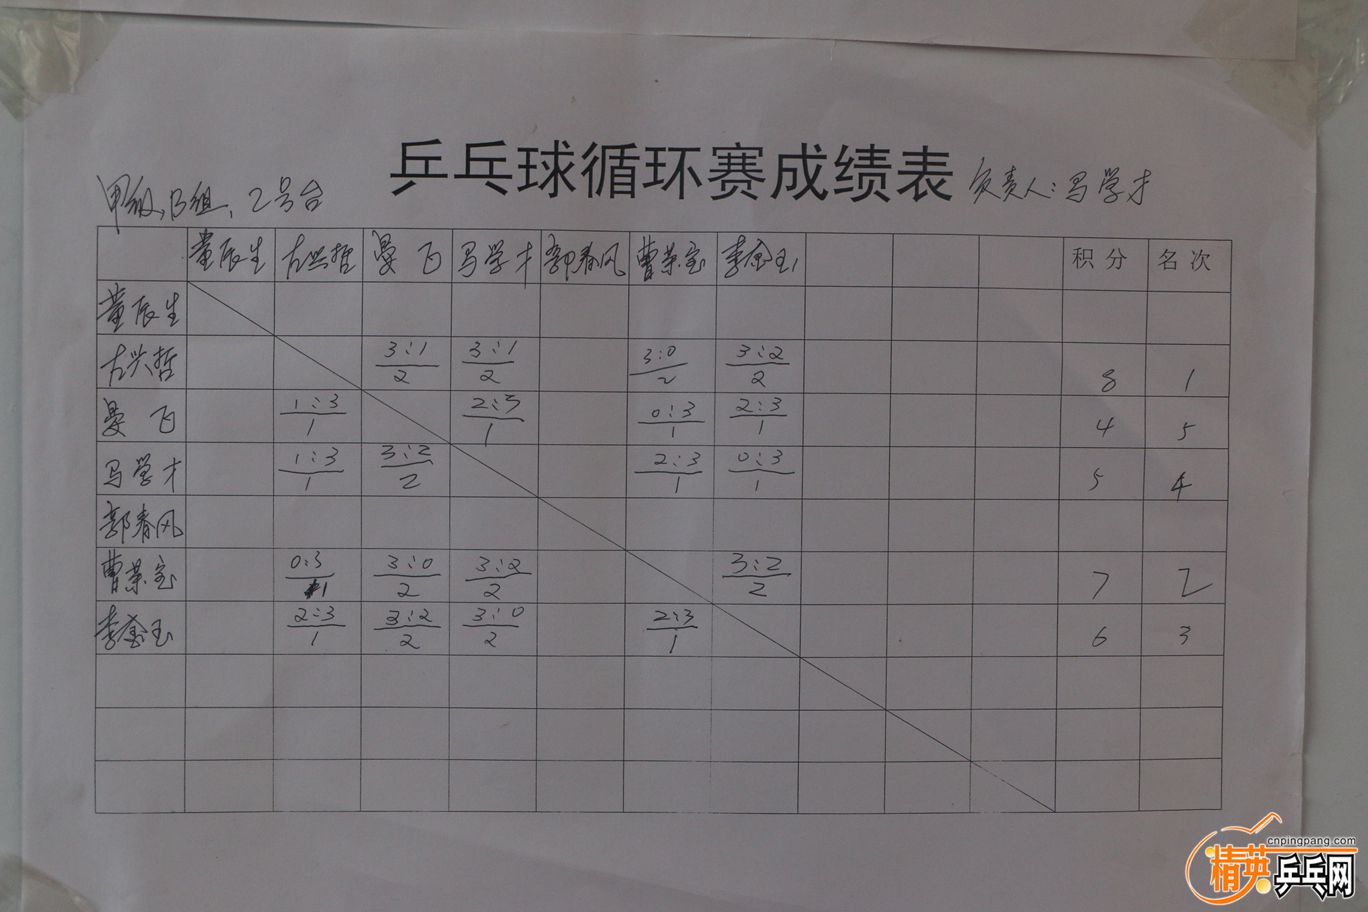 乒乓球循环赛成绩表 负责人:马学才
甲级,B组,2号台
董辰生 左兴哲 晏飞 马学才 郭春风 曹荣宝 李金玉 积分 名次
董辰生
左兴哲 3:1/2 3:1/2 3:0/2 3:2/2 8 1
晏飞 1:3/1 2:3/1 0:3/1 2:3/1 4 5
马学才 1:3/1 3:2/2 2:3/1 0:3/1 5 4
郭春风
曹荣宝 0:3/1 3:0/2 3:2/2 3:2/2 7 2
李金玉 2:3/1 3:2/2 3:0/2 2:3/1 6 3
cnpingpang.com
精英乒乓网